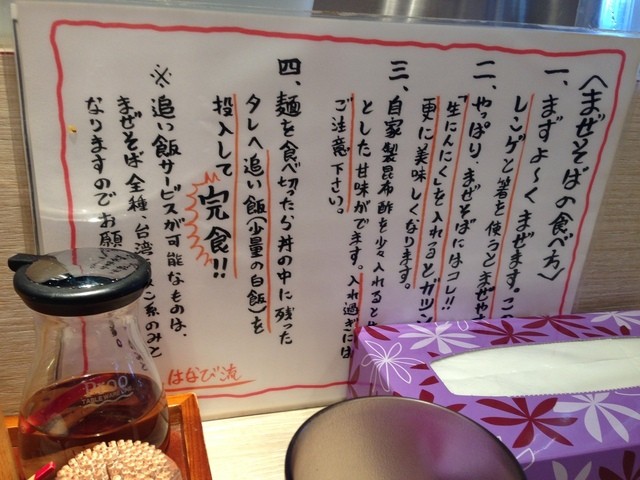 〈まぜそばの食べ方〉
一、まずよ〜くまぜます。この
レンゲと箸を使うとまぜやす
二、やっぱり、まぜそばにはコレ!!
「生にんにく」を入れるとガツン
更に美味しくなります。
三、自家製昆布酢を少々入れると
とした甘味がでます。入れ過ぎには
ご注意下さい。
四、麺を食べ切ったら丼の中に残った
タレへ追い飯(少量の白飯)を
投入して完食!!
※追い飯サービスが可能なものは、
まぜそば全種、台湾 系のみと
なりますのでお願い
はなび流
TABLEWARE